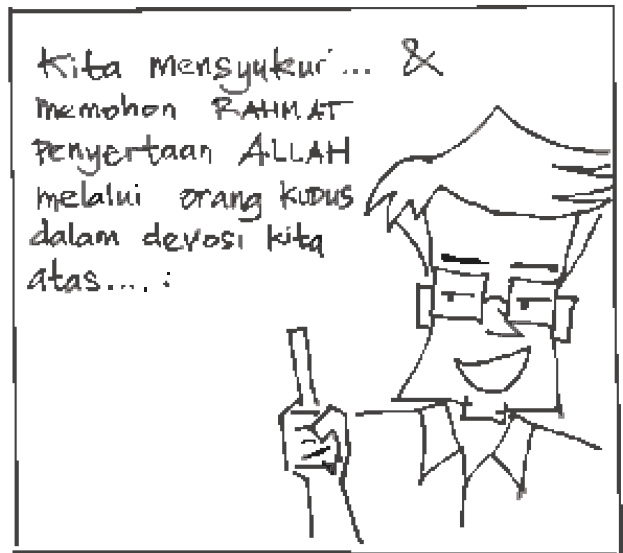 Kita mensyukuri ... &
memohon RAHMAT
Penyertaan ALLAH
melalui orang KUDUS
dalam devosi kita
atas.... :